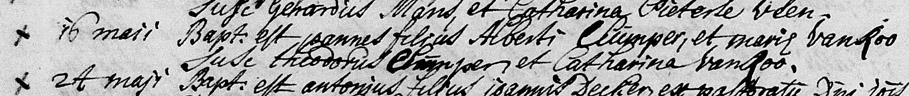 Susc Gerardus Mans, et Catharina Pieterse Veen.
x 16 maji Bapt: est joannes filius Alberti Clumper, et mariæ Van Roo
Susc theodorus Clumper, et Catharina Van Roo.
x 24 maji Bapt: est antonius filius joannis Decker, ex